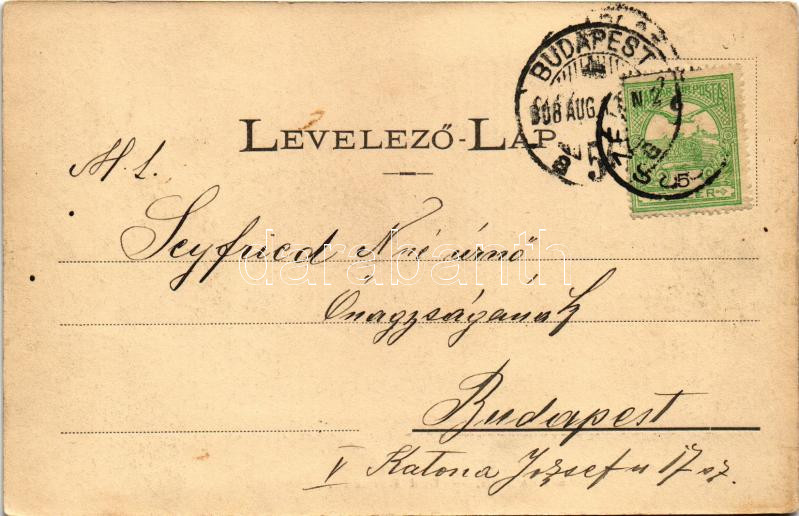 BUDAPEST
908 AUG.
MAGYAR KIR. POSTA
5
LEVELEZŐ-LAP
M. t.
Seyfried Nné úrnő
darabanth
Őnagyságának
Budapest
V Katona József u 17 sz.